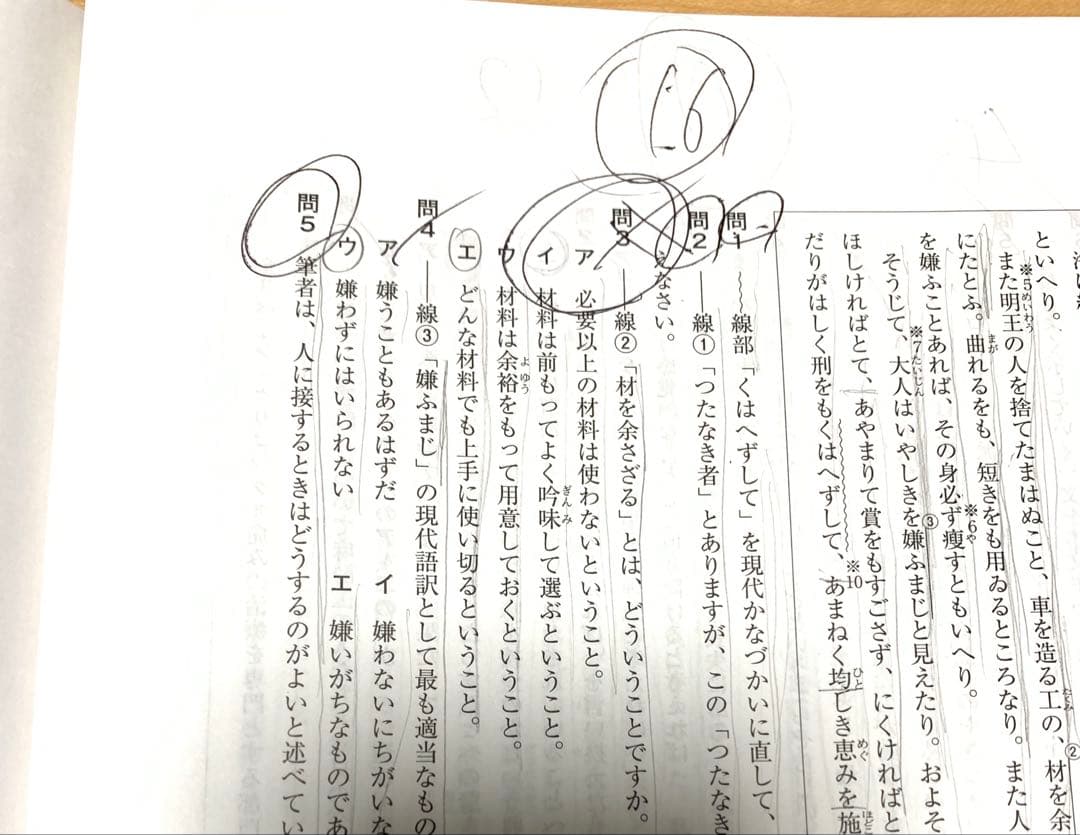 16
といへり。
※5 また明王の人を捨てたまはぬこと、車を造る工の、材を余
にたとふ。曲れるをも、短きをも用ゐるところなり。また人
を嫌ふことあれば、その身必ず※6痩すともいへり。
そうじて、※7大人はいやしきを③嫌ふまじと見えたり。およそ
ほしければとて、あやまりて賞をもすごさず、にくければと
だりがはしく刑をもくはへずして、※10あまねく均しき恵みを施
問1 〜〜線部「くはへずして」を現代かなづかいに直して、
問2 ――線①「つたなき者」とありますが、この「つたなき
えなさい。
問3 ――線②「材を余さざる」とは、どういうことですか。
ア 必要以上の材料は使わないということ。
イ 材料は前もってよく吟味して選ぶということ。
ウ 材料は余裕をもって用意しておくということ。
エ どんな材料でも上手に使い切るということ。
問4 ――線③「嫌ふまじ」の現代語訳として最も適当なもの
ア 嫌うこともあるはずだ イ 嫌わないにちがいな
ウ 嫌わずにはいられない エ 嫌いがちなものであ
問5 筆者は、人に接するときはどうするのがよいと述べてい